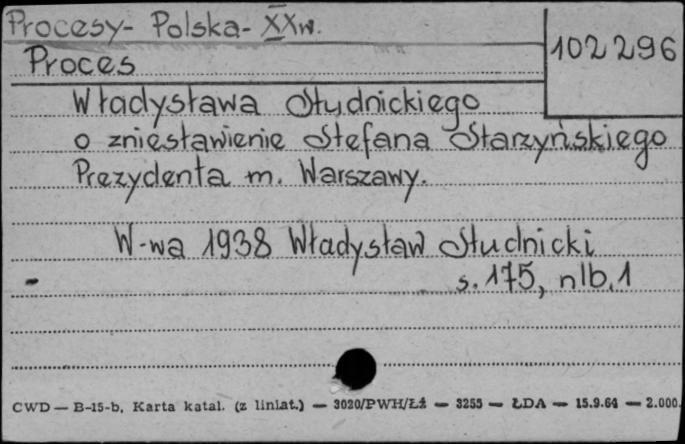 Procesy- Polska- XXw.
102296
Proces
Władysława Studnickiego
o zniesławienie Stefana Starzyńskiego
Prezydenta m. Warszawy.
W-wa 1938 Władysław Studnicki
s. 175, nlb. 1
CWD — B-15-b, Karta katal. (z liniat.) — 3020/PWH/Łż — 3255 — ŁDA — 15.9.64 — 2.000.